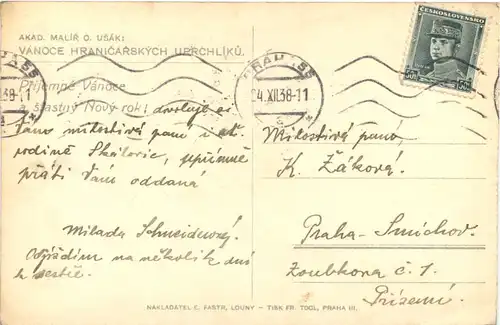 AKAD. MALÍŘ O. UŠÁK:
VÁNOCE HRANIČÁŘSKÝCH UPRCHLÍKŮ.
Příjemné Vánoce
a šťastný Nový rok!
milostivá paní
rodině
přáti Vám oddaná
Milada
Odjíždím na několik dní
k sestře.
PRAHA 55
4. XII. 38-11
ČESKOSLOVENSKO
50h
Milostivá paní,
K. Žáková.
Praha-Smíchov.
Zoubkova č. 1.
Přízemí.
NAKLADATEL E. FASTR, LOUNY – TISK FR. TOGL, PRAHA III.